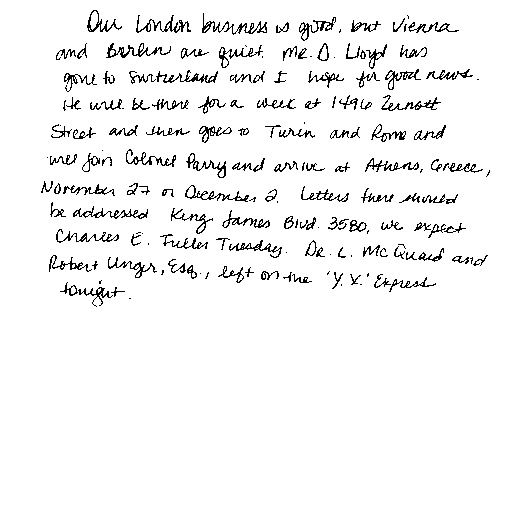 Our London business is good, but Vienna
and Berlin are quiet. Mr. D. Lloyd has
gone to Switzerland and I hope for good news.
He will be there for a week at 1496 Zermott
Street and then goes to Turin and Rome and
will join Colonel Parry and arrive at Athens, Greece,
November 27 or December 2. Letters there should
be addressed King James Blvd. 3580, we expect
Charles E. Fuller Tuesday. Dr. L. McQuaid and
Robert Unger, Esq., left on the 'Y.X.' Express
tonight.